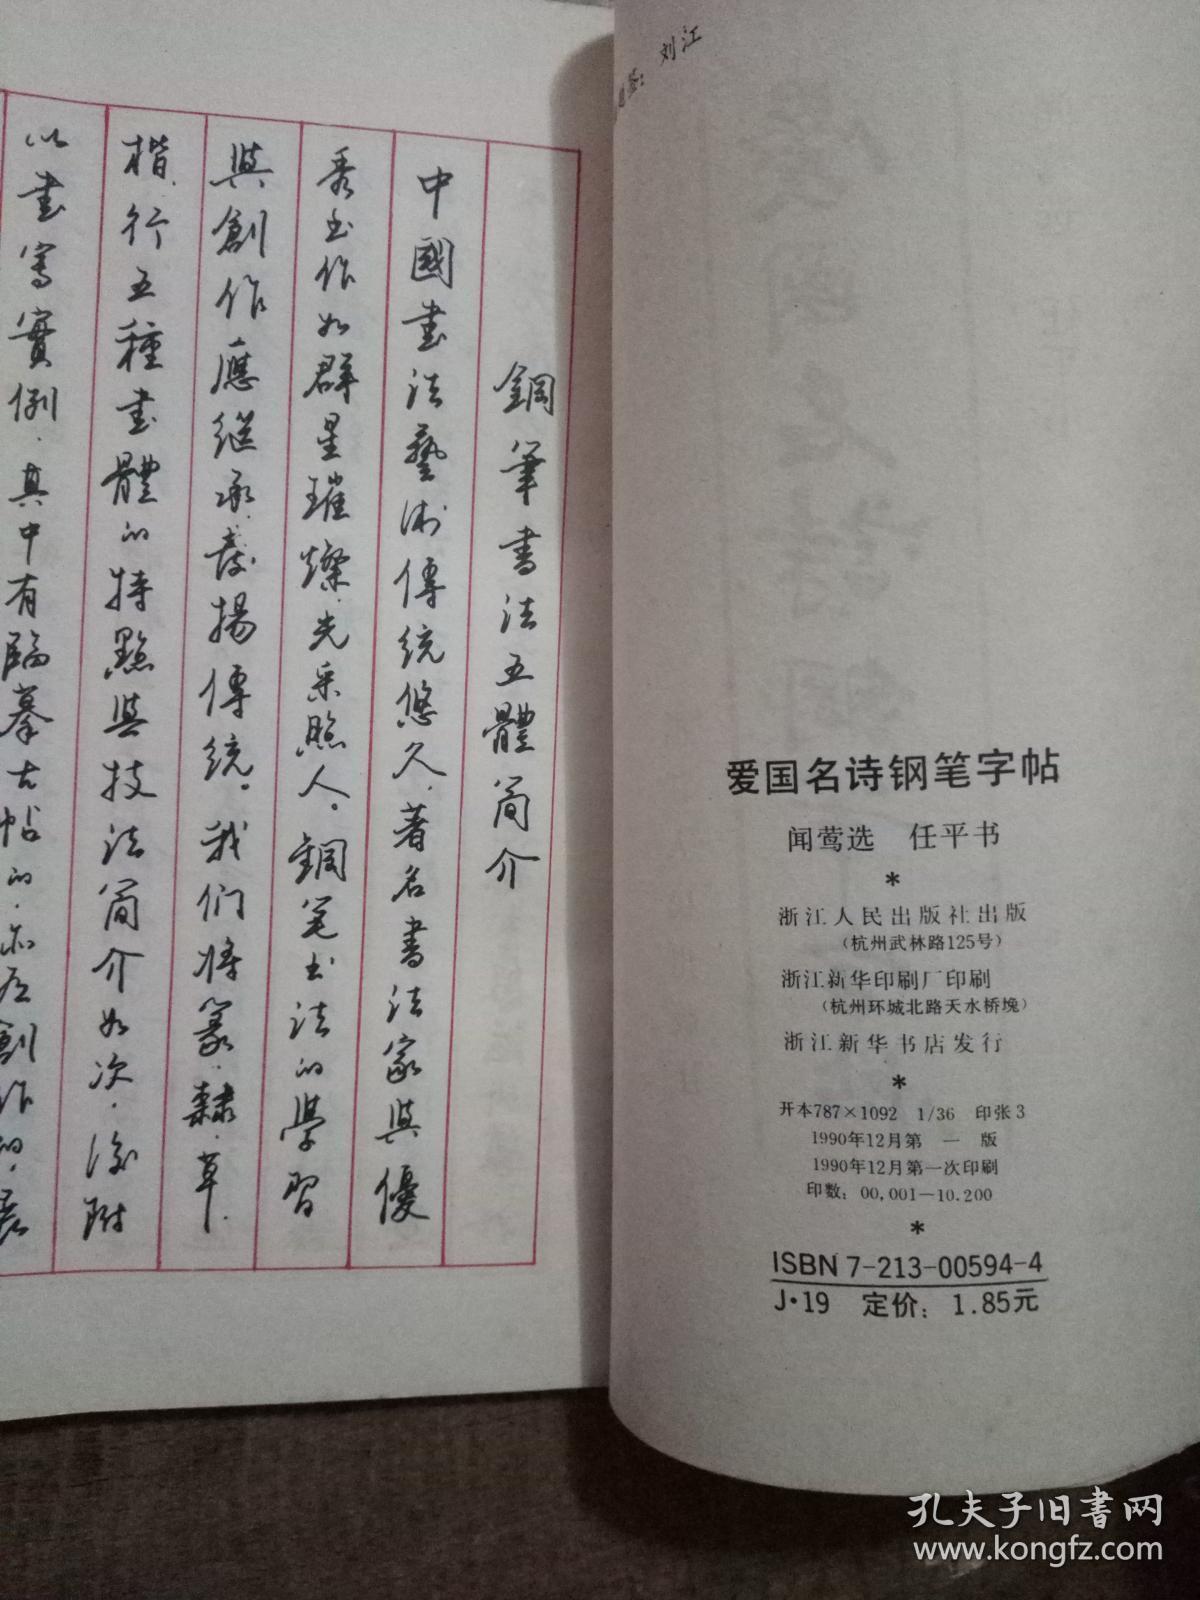 鋼筆書法五體简介
中國書法藝術傳統悠久.著名書法家與優
秀书作如群星璀燦.光采照人。鋼笔书法的學習
與創作應继承.發揚傳統。我们将篆.隸.草.
楷.行五種書體的特點與技法简介如次.後附
以書寫實例.其中有臨摹古帖的.亦有創作的.
刘江
爱国名诗钢笔字帖
闻莺选 任平书
*
浙江人民出版社出版
(杭州武林路125号)
浙江新华印刷厂印刷
(杭州环城北路天水桥堍)
浙江新华书店发行
*
开本787×1092 1/36 印张3
1990年12月第一版
1990年12月第一次印刷
印数：00,001—10.200
*
ISBN 7-213-00594-4
J·19 定价：1.85元
孔夫子旧书网
www.kongfz.com